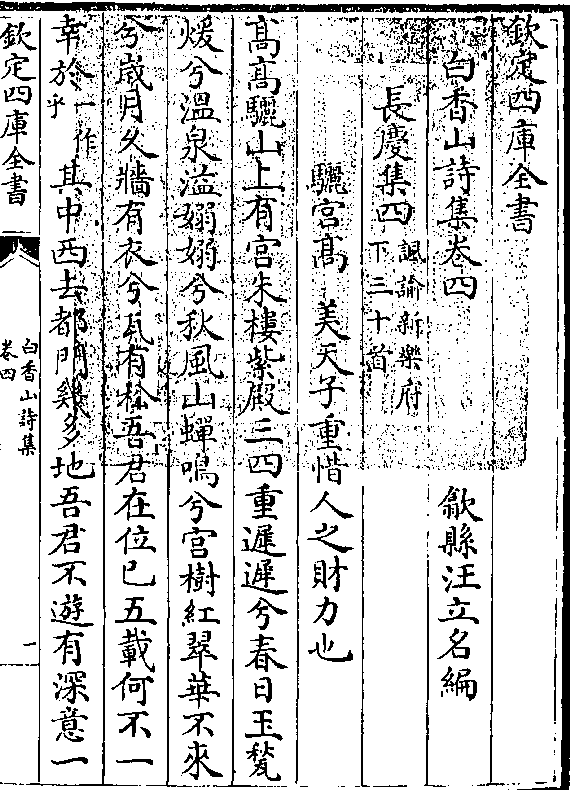 欽定四庫全書
白香山詩集卷四　歙縣汪立名編
長慶集四 諷諭新樂府下三十首
驪宮髙 美天子重惜人之財力也
髙髙驪山上有宮朱樓紫殿三四重遲遲兮春日玉甃
煖兮溫泉溢嫋嫋兮秋風山蟬鳴兮宮樹紅翠華不來
兮嵗月久牆有衣兮瓦有松吾君在位已五載何不一
幸於一作乎其中西去都門幾多地吾君不遊有深意一
欽定四庫全書
白香山詩集
卷四
一